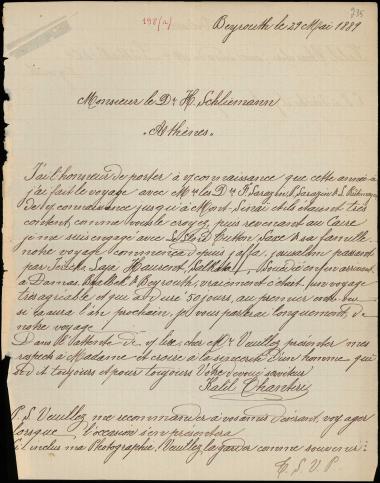 235
198(a)
Beyrouth le 29 Mai 1889
Monsieur le Dr H. Schliemann
"Athènes"
J'ai l'honneur de porter à v/ connaissance que cette année
j'ai fait le voyage avec Mrs les Drs F. Sarazin P. Sarazin & L.
de v/ connaissance jusqu'à Mont Sinaï et ils étaient très
content, comme vous le croyez, puis revenant au Caire
je me suis engagé avec & sa famille
notre voyage commence depuis jaffa, jerusalem passant
par
à Damas, & Beyrouth, vraiment c'était un voyage
très agréable et qui a duré 50 jours, au premier
si ce sera l'an prochain, je vous parlerai longuement de
notre voyage
Dans l'attente de v/ lire, cher Mr Veuillez présenter mes
respects à Madame et croire à la sincérité d'un homme qui
est toujours et pour toujours Votre dévoué serviteur
Kalil
P.S. Veuillez me recommander à vos amis désirant voyager
lorsque l'occasion s'en présentera
Ci inclus ma Photographie. Veuillez la garder comme souvenir
T. S. V. P